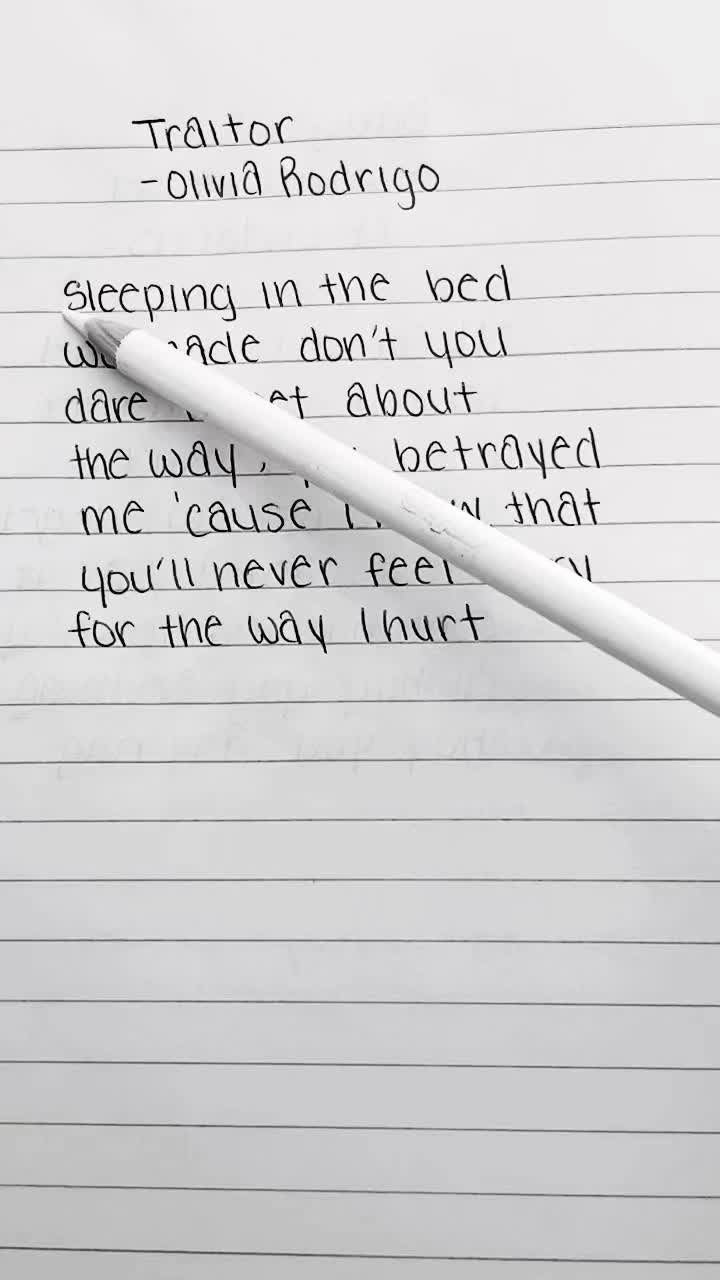 Traitor
-Olivia Rodrigo
Sleeping in the bed
don't you
dare about
the way betrayed
me 'cause that
you'll never feel
for the way I hurt